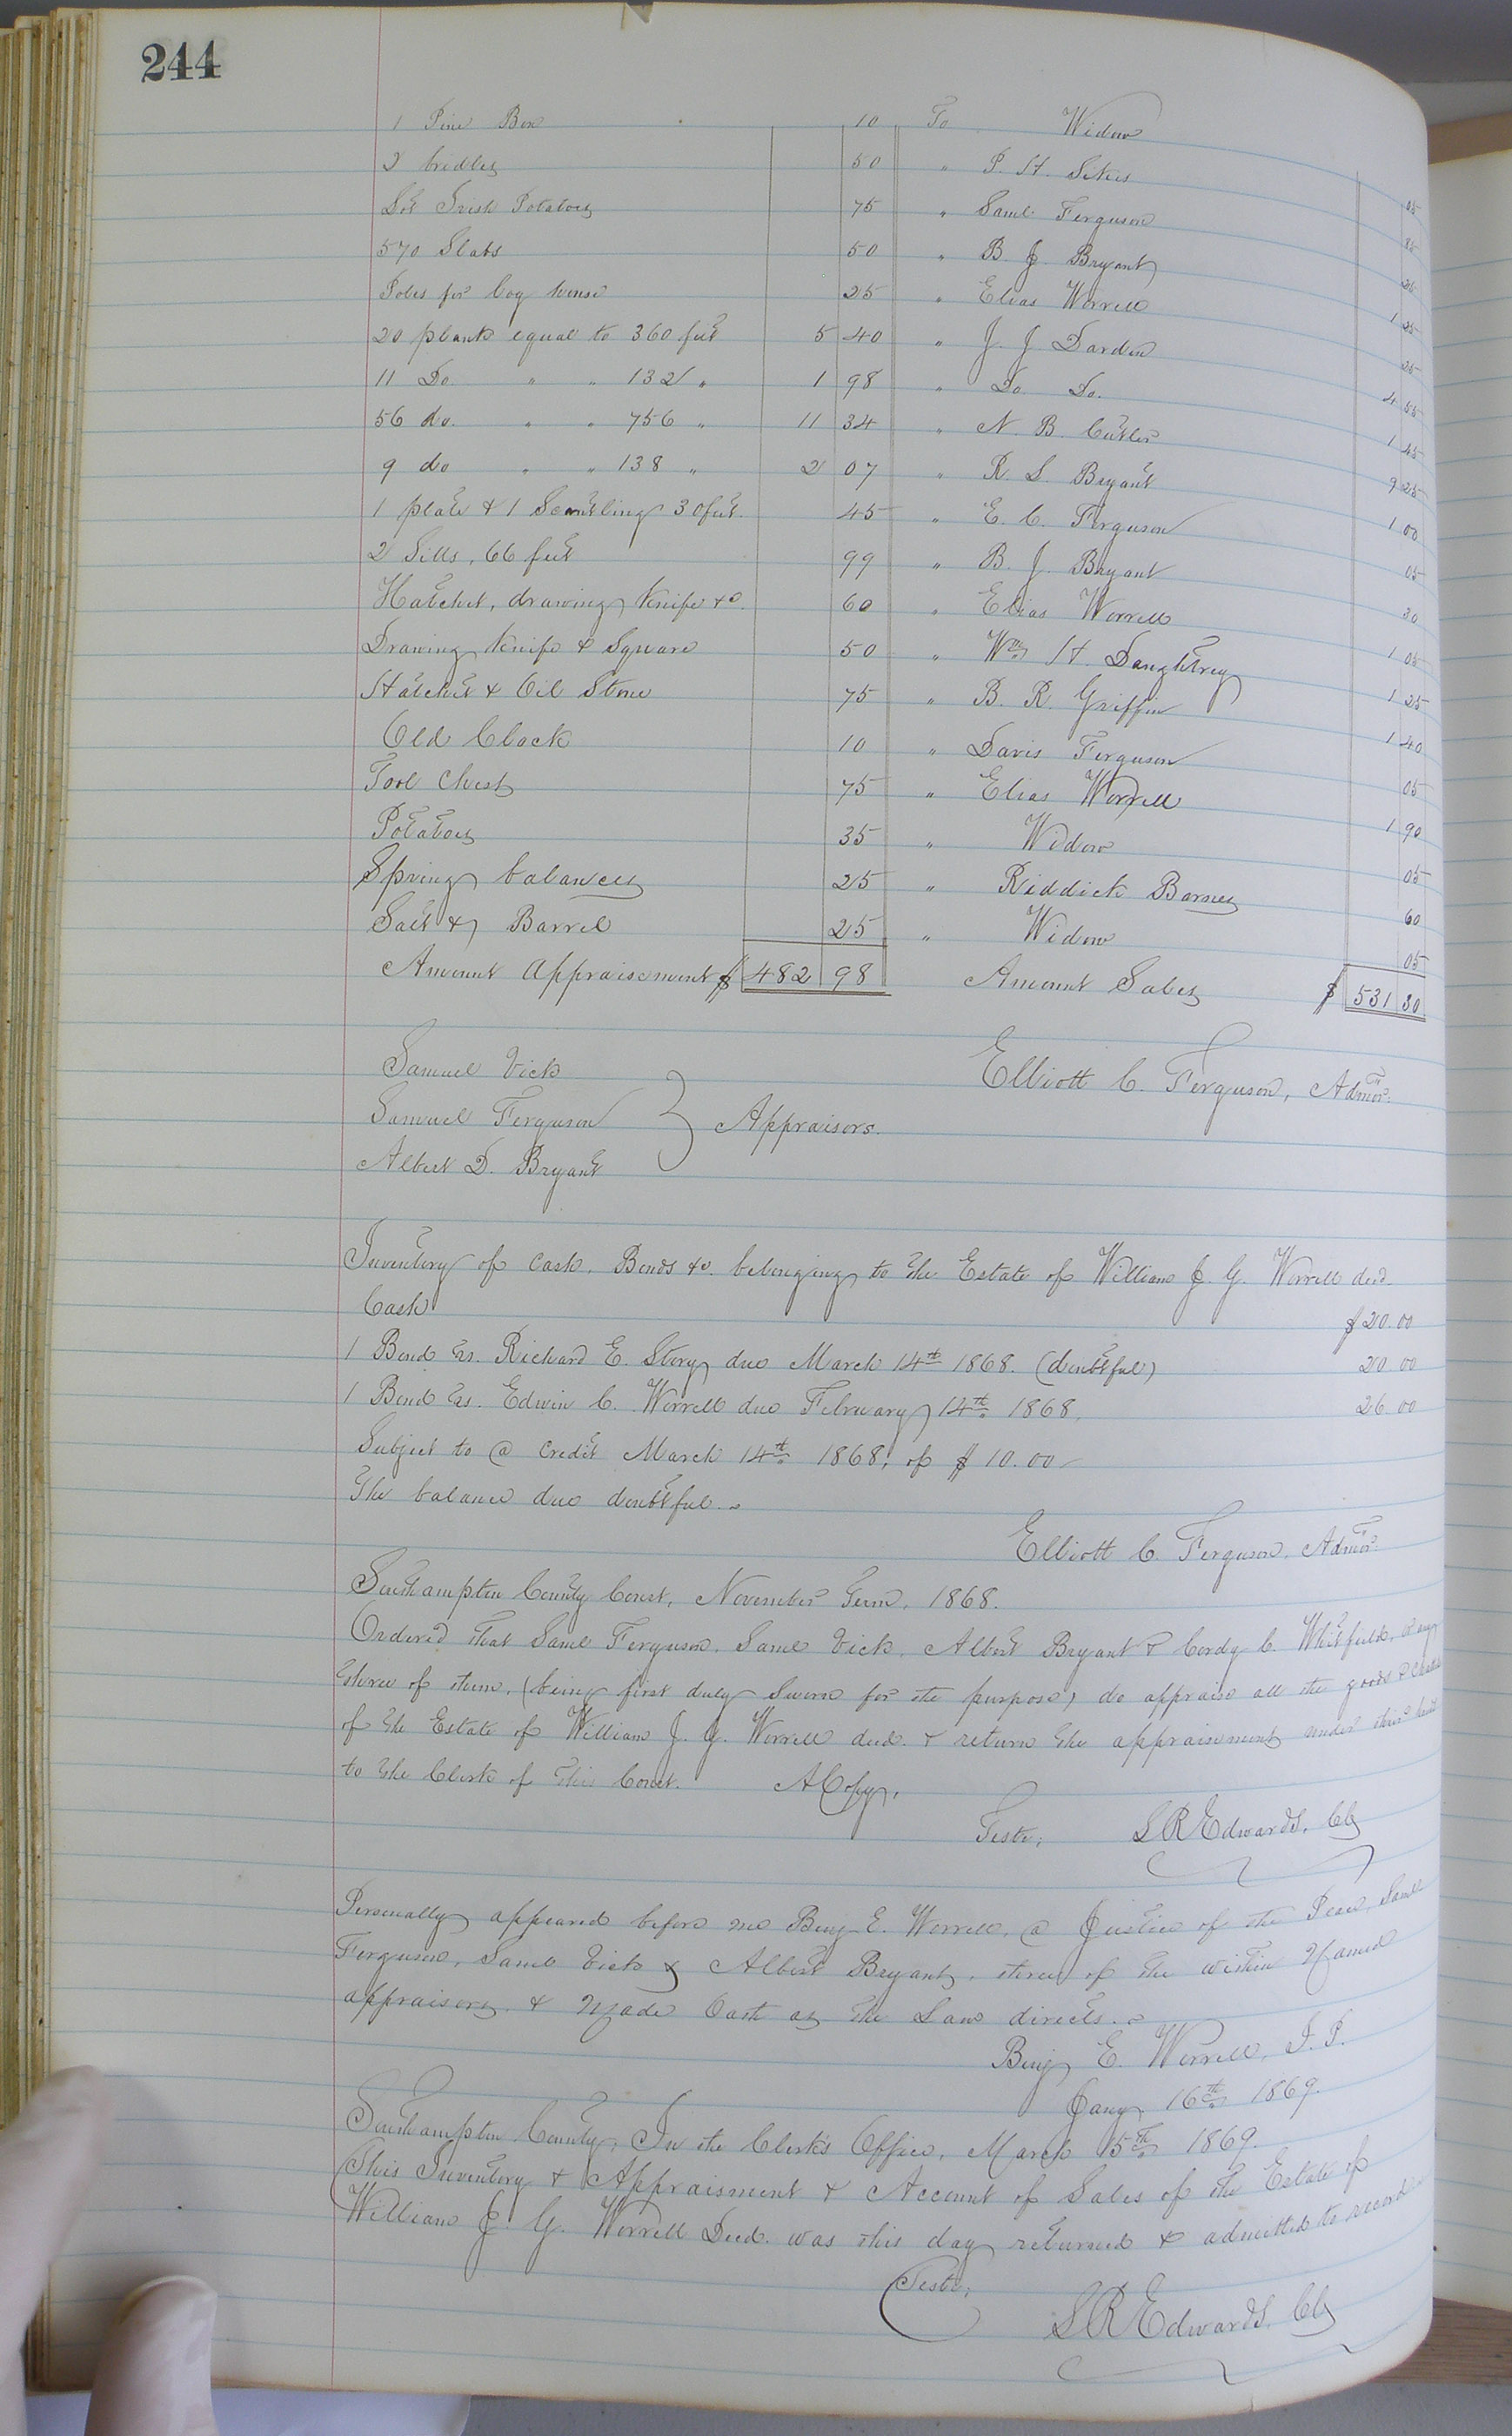 244
1 Pine Box 10 To Widow 05
2 bridles 50 " P. H. Sikes 85
Lot Irish Potatoes 75 " Saml Ferguson 25
570 Slabs 50 " B. J. Bryant 1 25
Poles for log house 25 " Elias Worrell 25
20 plank equal to 360 feet 5 40 " J. J. Darden 4 55
11 Do " " 132 " 1 98 " Do Do. 1 45
56 do. " " 756 " 11 34 " N. B. Cutler 9 25
9 do " " 138 " 2 07 " R. S. Bryant 1 00
1 plate & 1 Scantling 30 feet. 45 " E. C. Ferguson 05
2 Sills, 66 feet 99 " B. J. Bryant 30
Hatchet, drawing Knife &c. 60 " Elias Worrell 1 05
Drawing Knife & Square 50 " Wm H. Daughtrey 1 25
Hatchet & Oil Stone 75 " B. R. Griffin 1 40
Old Clock 10 " Davis Ferguson 05
Tool Chest 75 " Elias Worrell 1 90
Potatoes 35 " Widow 05
Spring balances 25 " Riddick Barnes 60
Salt & Barrel 25 " Widow 05
Amount Appraisement $ 482 98 Amount Sales $ 531 30
Samuel Vick Elliott C. Ferguson, Admor.
Samuel Ferguson } Appraisors.
Albert D. Bryant
Inventory of Cash, Bonds &c. belonging to the Estate of William J. G. Worrell decd.
Cash $20.00
1 Bond vs. Richard E. Story due March 14th 1868. (doubtful) 20.00
1 Bond vs. Edwin C. Worrell due February 14th 1868. 26.00
Subject to a Credit March 14th 1868, of $10.00
The balance due doubtful.
Elliott C. Ferguson, Admor.
Southampton County Court, November Term, 1868.
Ordered that Saml Ferguson, Saml Vick, Albert Bryant & Cordy C. Whitfield, or any
three of them, (being first duly Sworn for the purpose) do appraise all the goods & Chattels
of the Estate of William J. G. Worrell decd. & return the appraisement under their hands
to the Clerk of this Court. A Copy,
Teste, L R Edwards, Clk
Personally appeared before me Benj E. Worrell, a Justice of the Peace, Saml
Ferguson, Saml Vick & Albert Bryant, three of the within Named
appraisors & made Oath as the Law directs.
Benj E. Worrell, J. P.
Jany 16th 1869.
Southampton County, In the Clerk's Office, March 15th 1869.
This Inventory & Appraisment & Account of Sales of the Estate of
William J. G. Worrell Decd. was this day returned & admitted to record
Teste,
L R Edwards, Clk